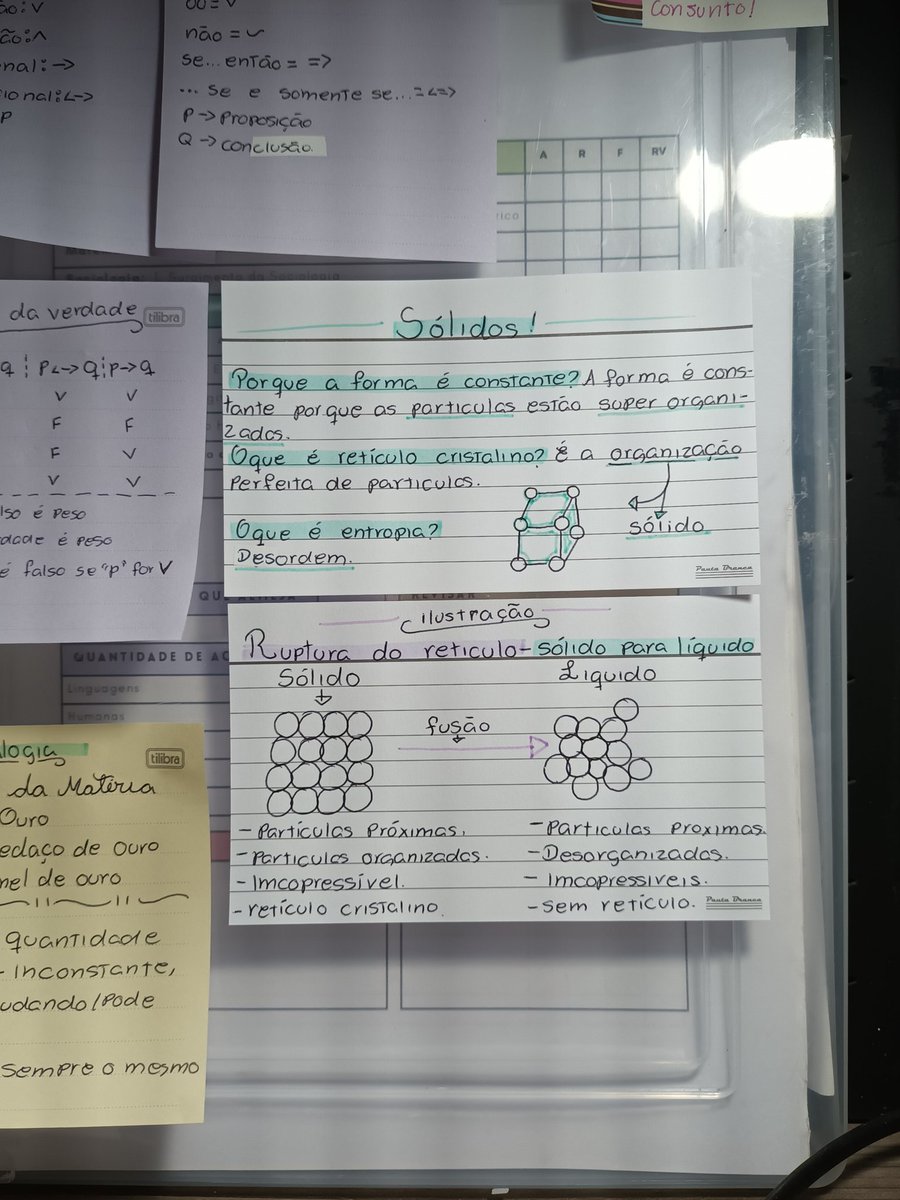 ou = v
não = ~
se... então = =>
... se e somente se... = <=>
P -> Proposição
Q -> conclusão.
ional: <->
P
Consunto!
A R F RV
Sociologia: | Surgimento da Sociologia
da verdade tilibra
q P<->q p->q
V V
F F
F V
V V
lso é peso
dade é peso
é falso se "p" for V
Sólidos!
Porque a forma é constante? A forma é cons-
tante porque as particulas estão super organi-
zadas.
Oque é retículo cristalino? É a organização
Perfeita de particulas.
sólido
Oque é entropia?
Desordem.
Pauta Branca
ilustração
Ruptura do reticulo - sólido para líquido
Sólido
Liquido
fusão
- Partículas Próximas.
- Particulas organizadas.
- Imcopressível.
- retículo cristalino.
- Particulas proximas.
- Desorganizadas.
- Imcopressiveis.
- sem retículo.
Pauta Branca
QUANTIDADE DE AC
Linguagens
Humanas
alogia tilibra
da Matéria
Ouro
edaço de ouro
nel de ouro
quantidade
- inconstante,
udando/Pode
sempre o mesmo